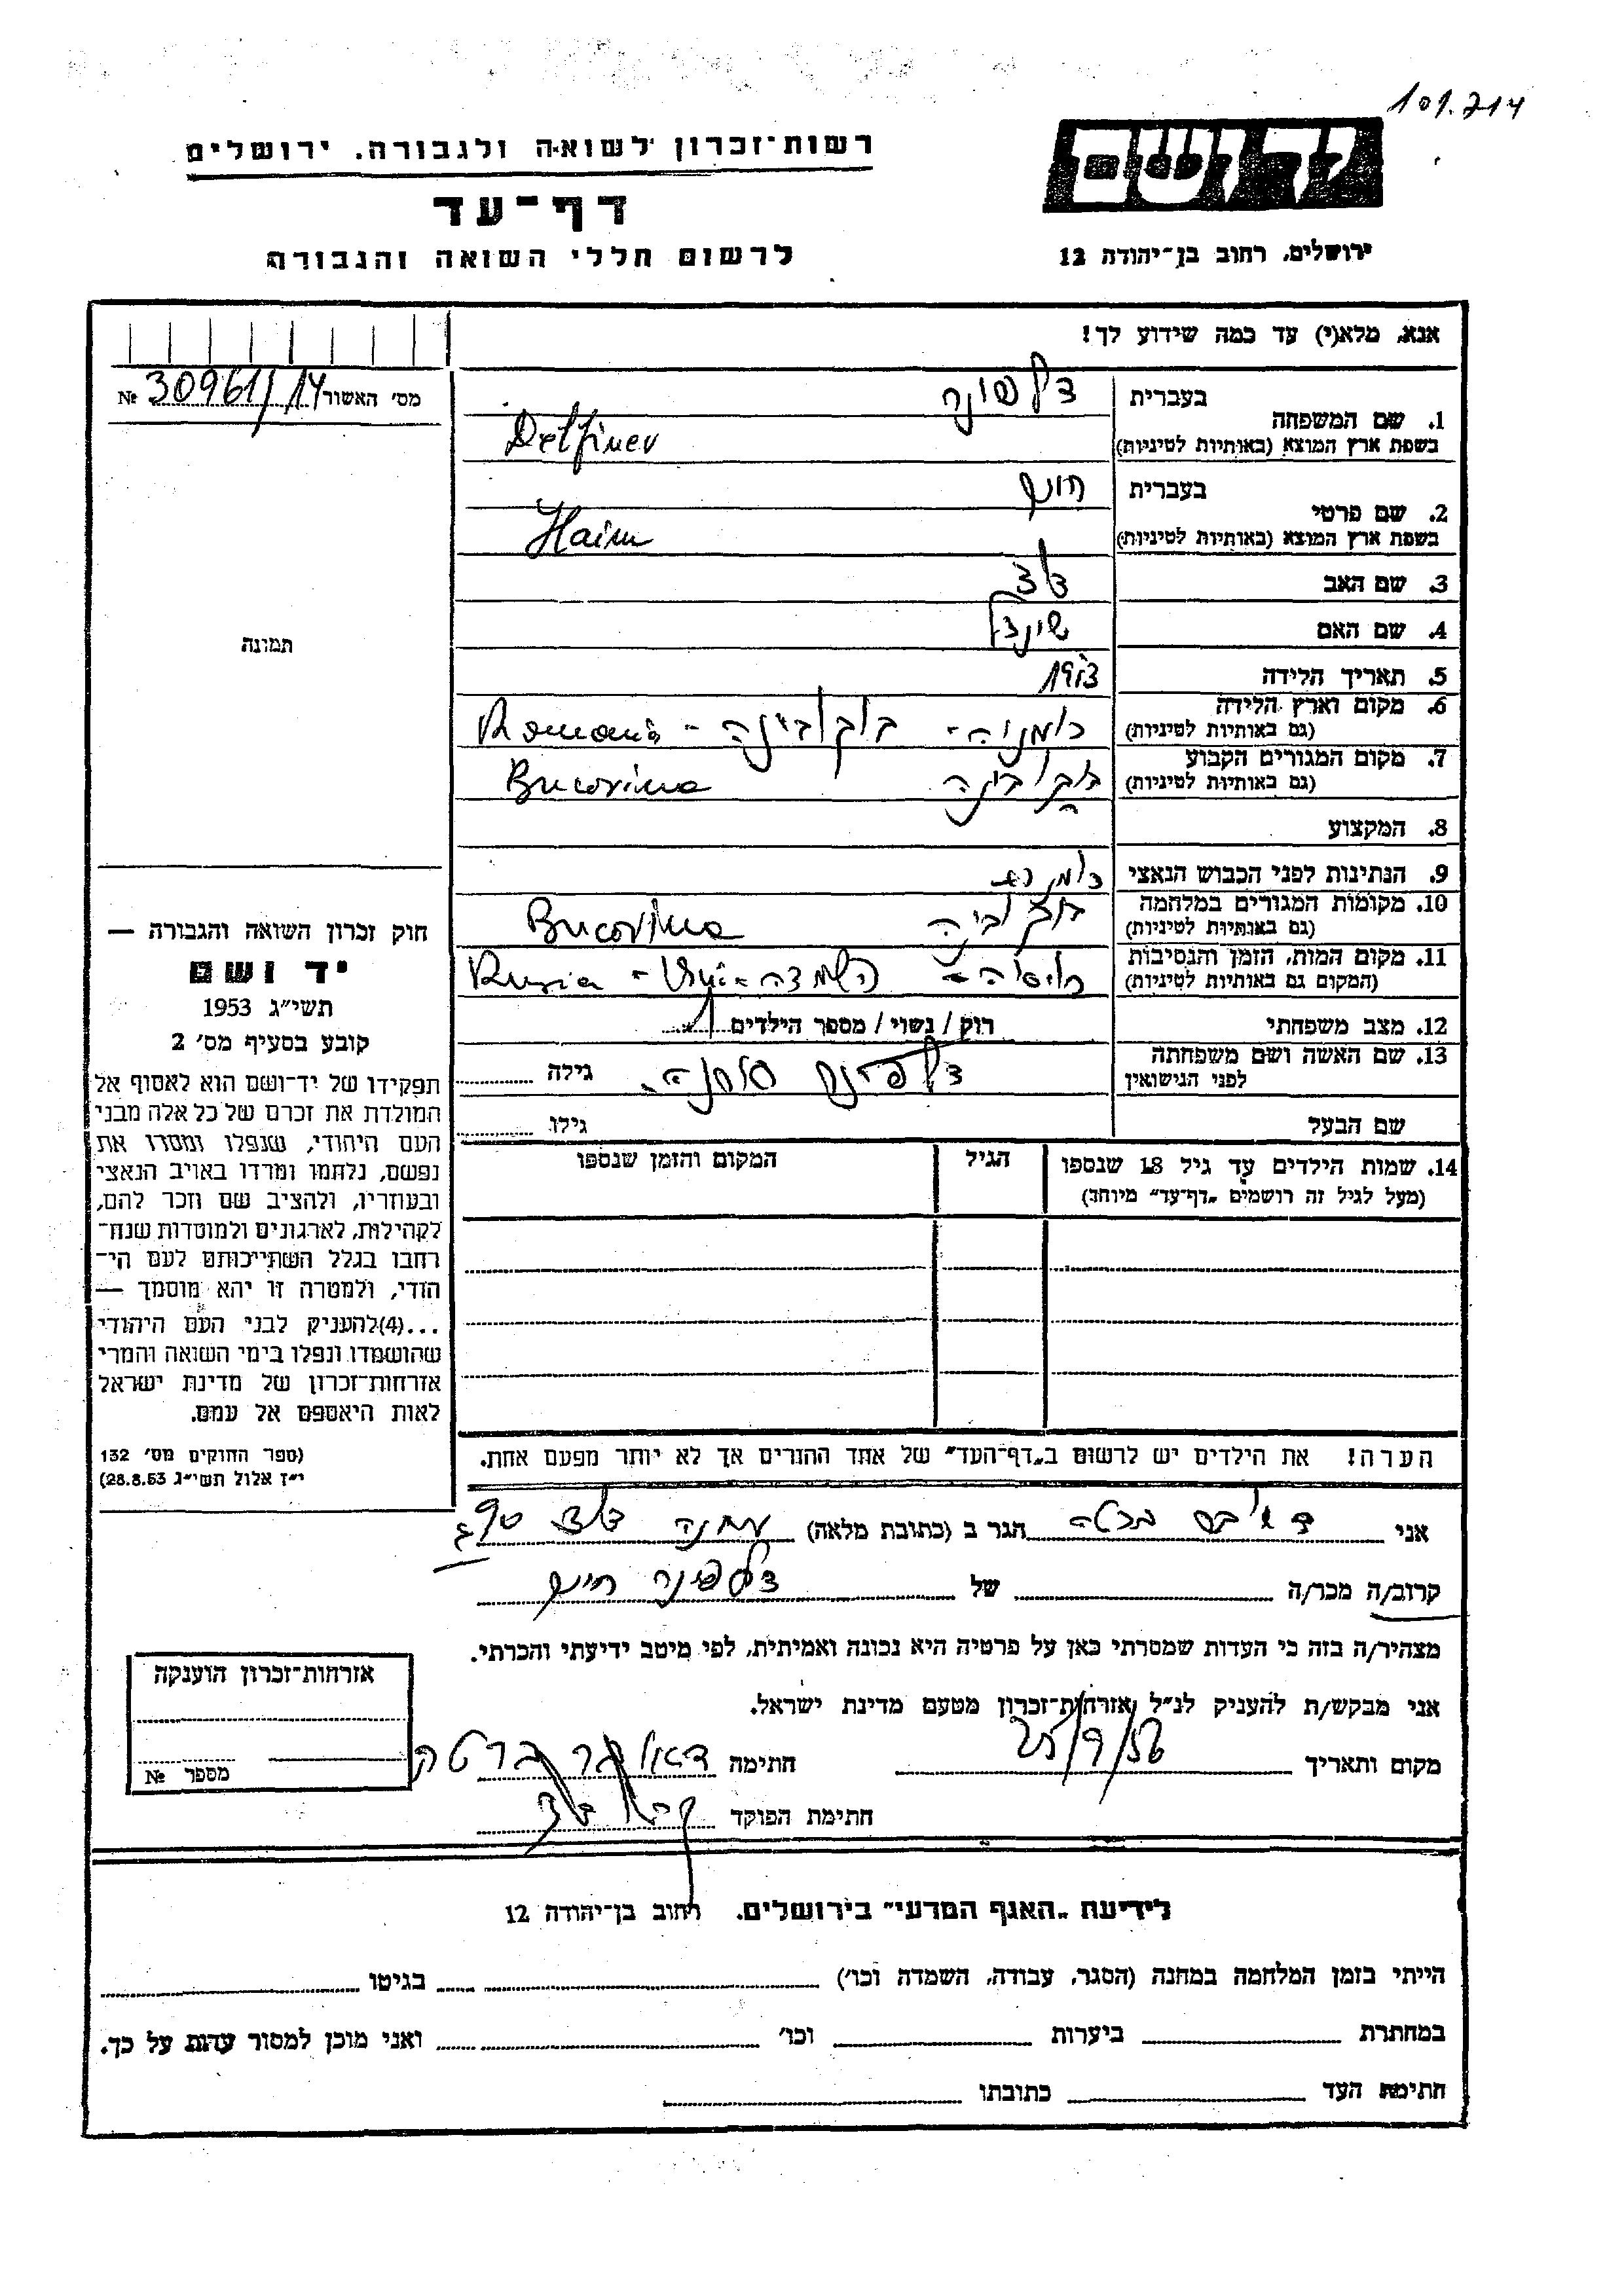 101.214
רשות־זכרון לשואה ולגבורה. ירושלים
יד ושם
דף־עד
לרשום חללי השואה והגבורה
ירושלים, רחוב בן־יהודה 12
אנא, מלא(י) עד כמה שידוע לך!
מס׳ האשור 30961/14 №
תמונה
1. שם המשפחה
בעברית
בשפת ארץ המוצא (באותיות לטיניות) Delfiner
2. שם פרטי
בעברית חיים
בשפת ארץ המוצא (באותיות לטיניות) Haim
3. שם האב דוד
4. שם האם שינדל
5. תאריך הלידה 1913
6. מקום וארץ הלידה רומניה - בוקובינה - Romania
(גם באותיות לטיניות)
7. מקום המגורים הקבוע בוקובינה Bucovina
(גם באותיות לטיניות)
8. המקצוע
9. הנתינות לפני הכבוש הנאצי
10. מקומות המגורים במלחמה בוקובינה Bucovina
(גם באותיות לטיניות)
11. מקום המות, הזמן והנסיבות רוסיה - השמדה - Rusia
(המקום גם באותיות לטיניות)
12. מצב משפחתי רוק / נשוי / מספר הילדים 1
13. שם האשה ושם משפחתה
לפני הנישואין דלפינר גילה
שם הבעל גילו
14. שמות הילדים עד גיל 18 שנספו הגיל המקום והזמן שנספו
(מעל לגיל זה רושמים „דף־עד״ מיוחד)
הערה! את הילדים יש לרשום ב„דף־העד״ של אחד ההורים אך לא יותר מפעם אחת.
חוק זכרון השואה והגבורה —
יד ושם
תשי״ג 1953
קובע בסעיף מס׳ 2
תפקידו של יד־ושם הוא לאסוף אל
המולדת את זכרם של כל אלה מבני
העם היהודי, שנפלו ומסרו את
נפשם, נלחמו ומרדו באויב הנאצי
ובעוזריו, ולהציב שם וזכר להם,
לקהילות, לארגונים ולמוסדות שנח־
רחבו בגלל השתייכותם לעם הי־
הודי, ולמטרה זו יהא מוסמך —
...(4)להעניק לבני העם היהודי
שהושמדו ונפלו בימי השואה והמרי
אזרחות־זכרון של מדינת ישראל
לאות היאספם אל עמם.
(ספר החוקים מס׳ 132
י״ז אלול תשי״ג 28.8.53)
אני ברטה הגר ב (כתובת מלאה)
קרוב/ה מכר/ה של דלפינר חיים
מצהיר/ה בזה כי העדות שמסרתי כאן על פרטיה היא נכונה ואמיתית, לפי מיטב ידיעתי והכרתי.
אני מבקש/ת להעניק לנ״ל אזרחות־זכרון מטעם מדינת ישראל.
מקום ותאריך 25/9/56 חתימה ברטה
חתימת הפוקד
אזרחות־זכרון הוענקה
מספר №
לידיעת „האגף המדעי״ בירושלים. רחוב בן־יהודה 12
הייתי בזמן המלחמה במחנה (הסגר, עבודה, השמדה וכו׳) בגיטו
במחתרת ביערות וכו׳ ואני מוכן למסור עדות על כך.
חתימת העד כתובתו